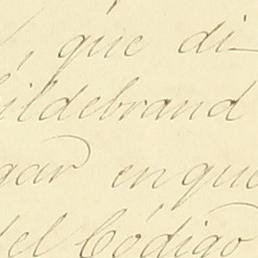 , que di-
ildebrand
gar en que
del Código